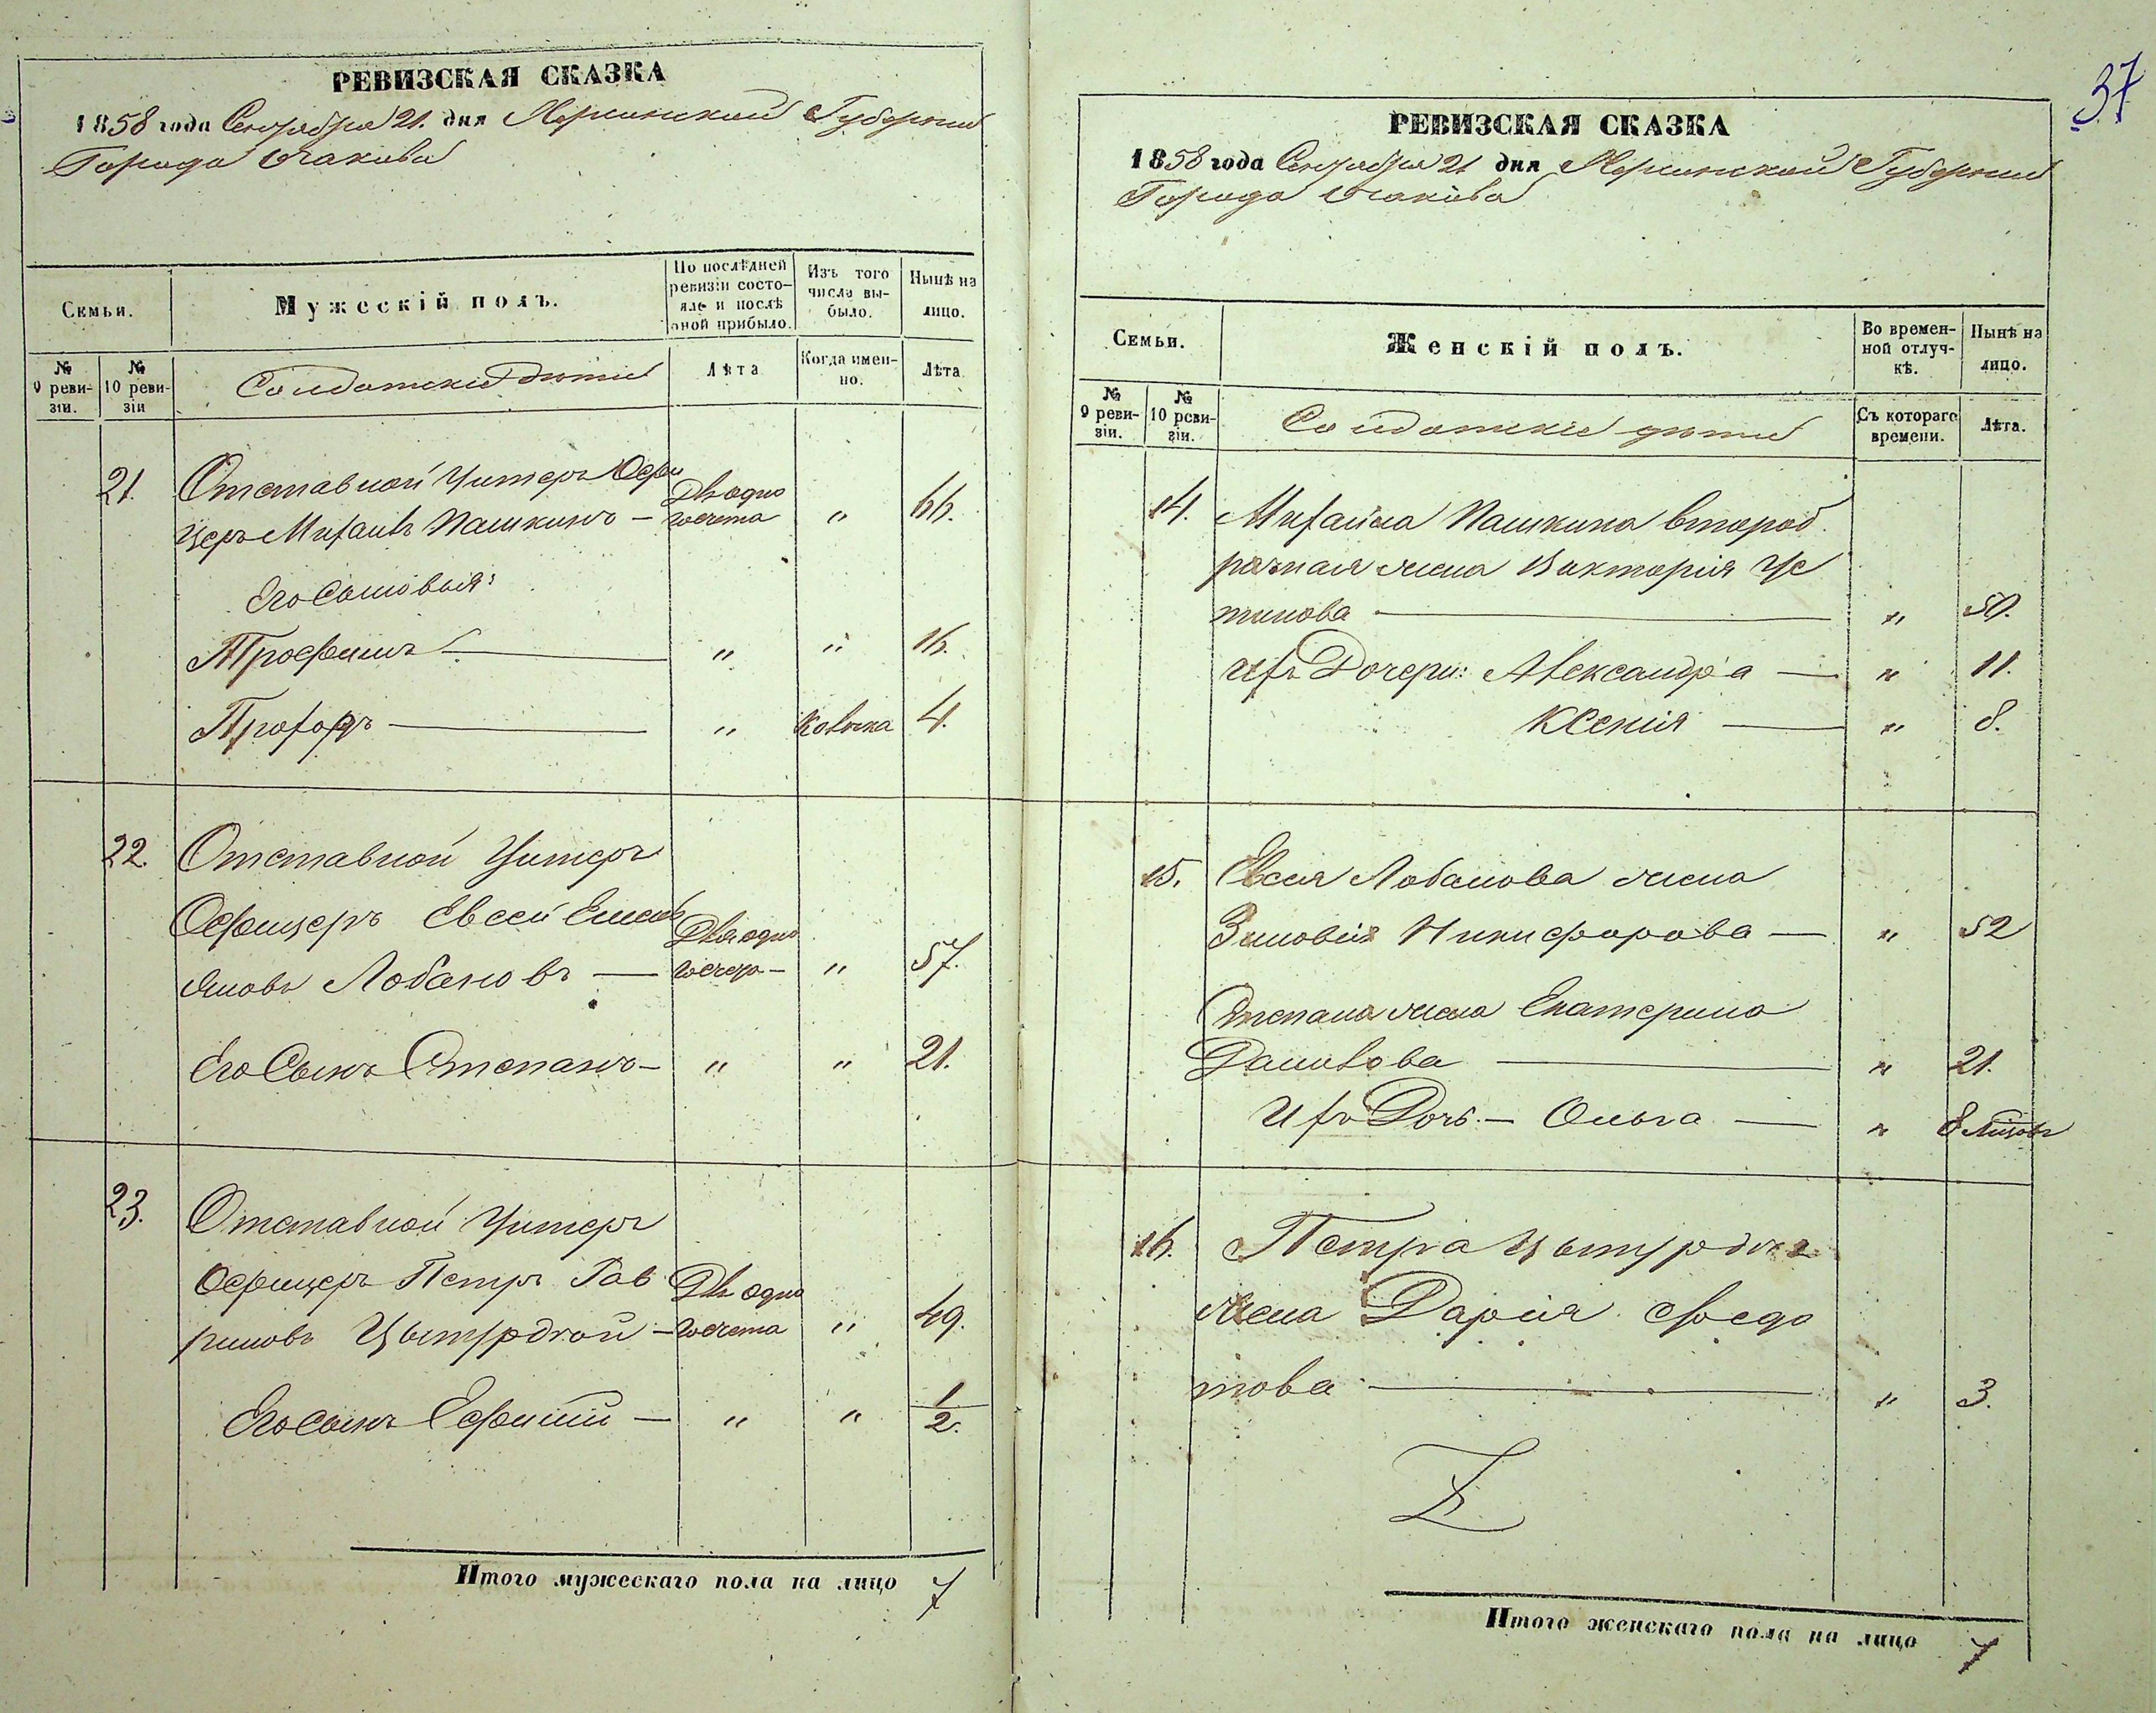 РЕВИЗСКАЯ СКАЗКА
1858 года Сентября 21. дня Херсонской Губернии
Города Очакова
Семьи.
Мужескій полъ.
По послѣдней ревизіи состояло и послѣ оной прибыло.
Изъ того числа выбыло.
Нынѣ на лицо.
№ 9 ревизіи.
№ 10 ревизіи
Солдатскіе дѣти
Лѣта
Когда именно.
Лѣта
21. Отставной Унтеръ Офи Для одно
церъ Михаилъ Пашкинъ — го счета " 66.
Его Сыновья:
Трофимъ — " " 16.
Прохоръ — " 4.
22. Отставной Унтеръ
Офицеръ Евсей Емель Для одно
яновъ Лобановъ — го счета — " 57.
Его Сынъ Степанъ — " " 21.
23. Отставной Унтеръ
Офицеръ Петръ Гав Для одно
риловъ — го счета " 49.
Его сынъ Ефимій — " " 1/2.
Итого мужескаго пола на лицо 7
37
РЕВИЗСКАЯ СКАЗКА
1858 года Сентября 21 дня Херсонской Губернии
Города Очакова
Семьи.
Женскій полъ.
Во временной отлучкѣ.
Нынѣ на лицо.
№ 9 ревизіи.
№ 10 ревизіи.
Солдатскіе дѣти
Съ котораго времени.
Лѣта.
14. Михайла Пашкина второб
рачная жена Викторія Ус
тинова — " 50.
Ихъ Дочери: Александра — " 11.
Ксенія — " 8.
15. Евсея Лобанова жена
Зиновія Никифорова — " 52
Степана жена Екатерина
Данилова — " 21.
Ихъ Дочь — Ольга — " 8 мѣсяц
16. Петра
жена Дарія Федо
това — " 3.
Z
Итого женскаго пола на лицо 7